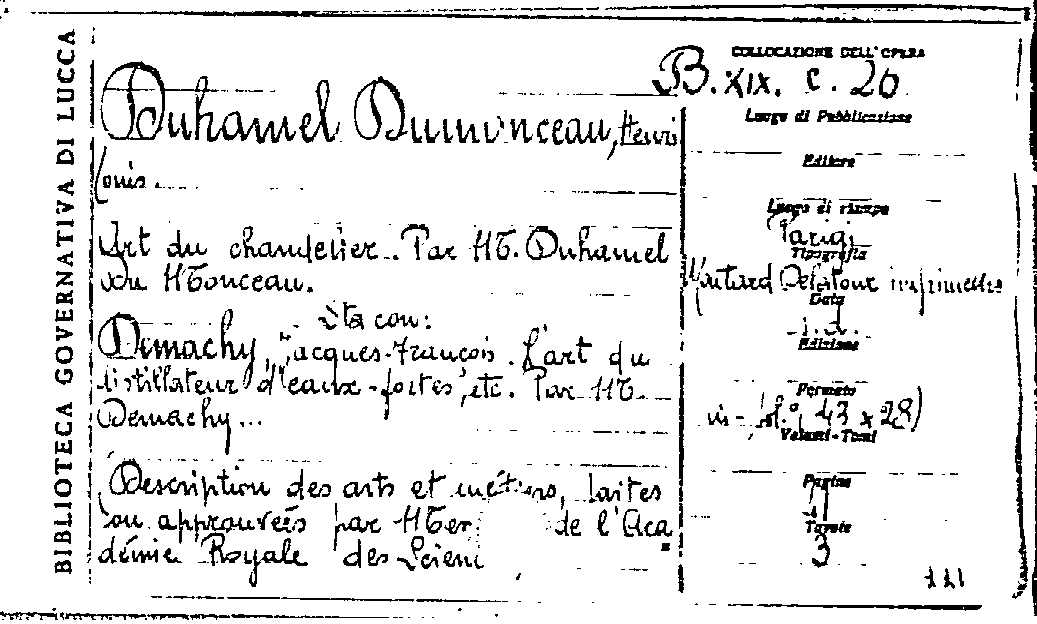 BIBLIOTECA GOVERNATIVA DI LUCCA
Duhamel Dumonceau, Henri
Louis.
Art du chandelier. Par M. Duhamel
du Monceau.
Sta con:
Demachy, Jacques-François. L'art du
distillateur d'eaux-fortes, etc. Par M.
Demachy...
Description des arts et métiers, faites
ou approuvées par Mer de l'Aca
démie Royale des Scien
COLLOCAZIONE DELL'OPERA
B. XIX. c. 20
Luogo di Pubblicazione
Editore
Luogo di stampa
Parigi
Tipografia
Moutard Delatour imprimeurs
Data
s.d.
Edizione
Formato
in-fol.°, 43 x 28)
Volumi-Tomi
Pagine
Tavole
3